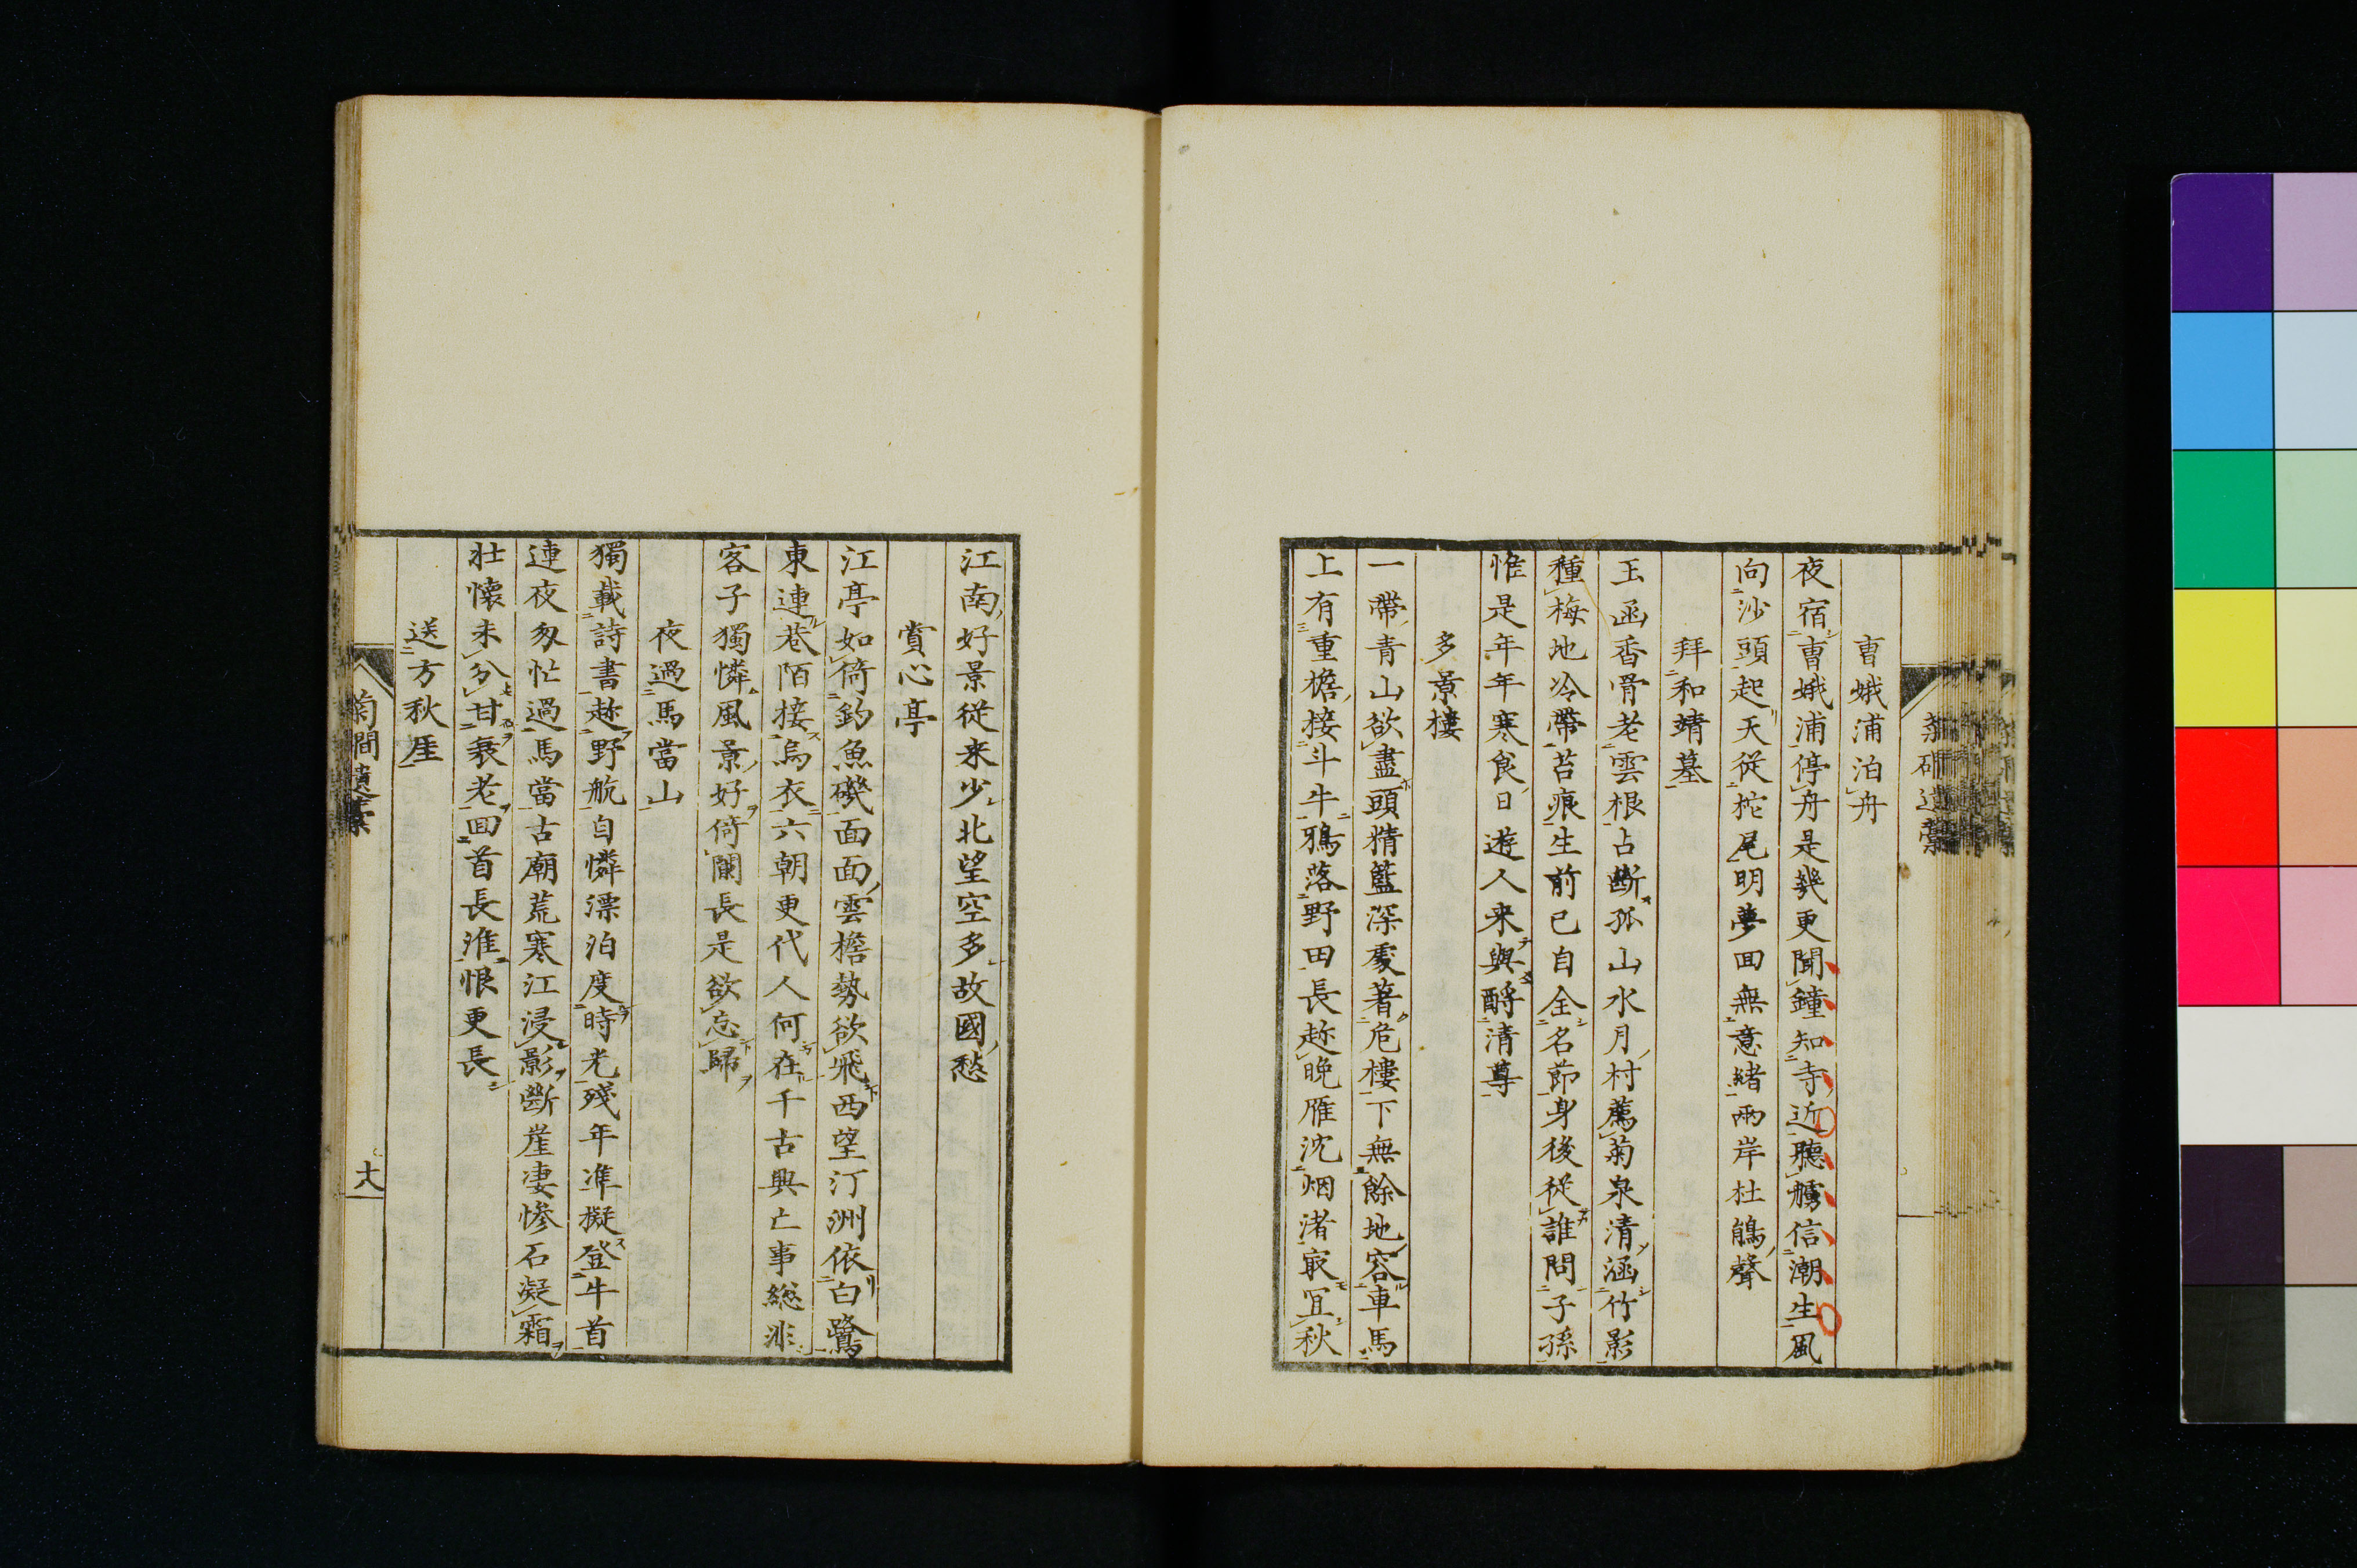 曹娥浦泊舟
夜宿曹娥浦停舟是幾更聞鐘知寺近聽艣信潮生風
向沙頭起天從柁尾明夢回無意緒兩岸杜鵑聲
拜和靖墓
玉函香骨老雲根占斷孤山水月村薦菊泉清涵竹影
種梅地冷帶苔痕生前已自全名節身後從誰問子孫
惟是年年寒食日遊人来與酹清尊
多景樓
一帶青山欲盡頭精籃深處著危樓下無餘地容車馬
上有重檐接斗牛鴉落野田長趂晚雁沈烟渚冣冝秋
江南好景從来少北望空多故國愁
賞心亭
江亭如倚釣魚磯面面雲檐勢欲飛西望汀洲依白鷺
東連巷陌接烏衣六朝更代人何在千古興亡事總非
客子獨憐風景好倚闌長是欲忘歸
夜過馬當山
獨載詩書趂野航自憐漂泊度時光殘年準擬登牛首
連夜匆忙過馬當古廟荒寒江浸影斷崖凄慘石凝霜
壯懷未分甘衰老回首長淮恨更長
送方秋厓
菊磵遺藁
十八